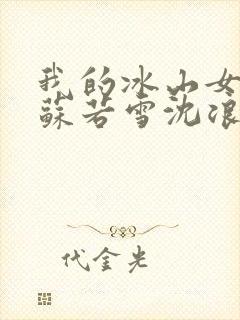 我的冰山女
蘇若雪沈浪
代金光